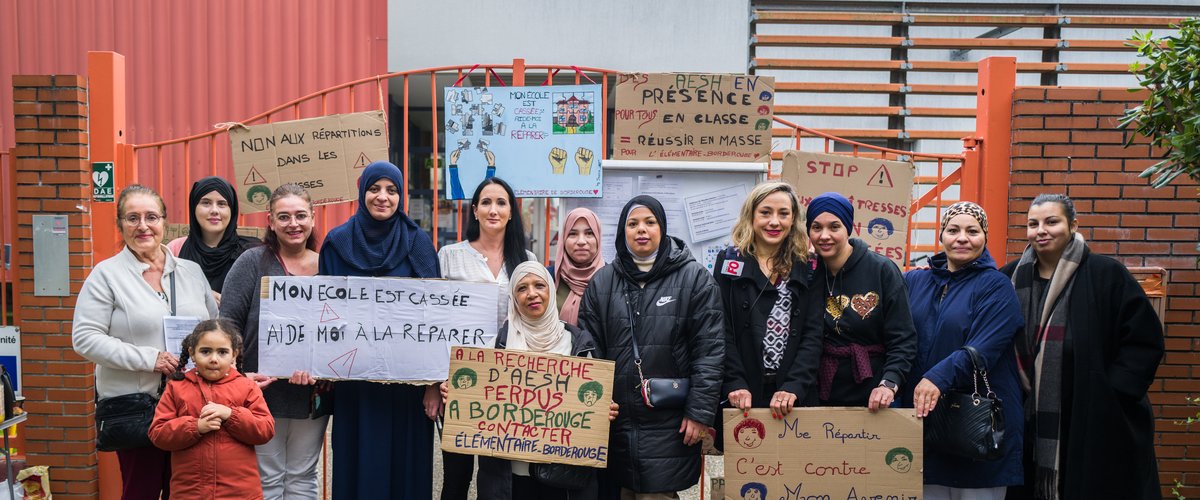 NON AUX RÉPARTITIONS
DANS LES
MON ÉCOLE
EST CASSÉE
AIDE MOI
À LA
RÉPARER
ÉLÉMENTAIRE BORDEROUGE
DES AESH EN
PRÉSENCE
POUR TOUS EN CLASSE
= RÉUSSIR EN MASSE
L'ÉLÉMENTAIRE-BORDEROUGE
STOP
DAE
MON ÉCOLE EST CASSÉE
AIDE MOI À LA RÉPARER
A LA RECHERCHE
D'AESH
PERDUS
A BORDEROUGE
CONTACTER
ÉLÉMENTAIRE-BORDEROUGE
Me Répartir
C'est contre
Mon Avenir